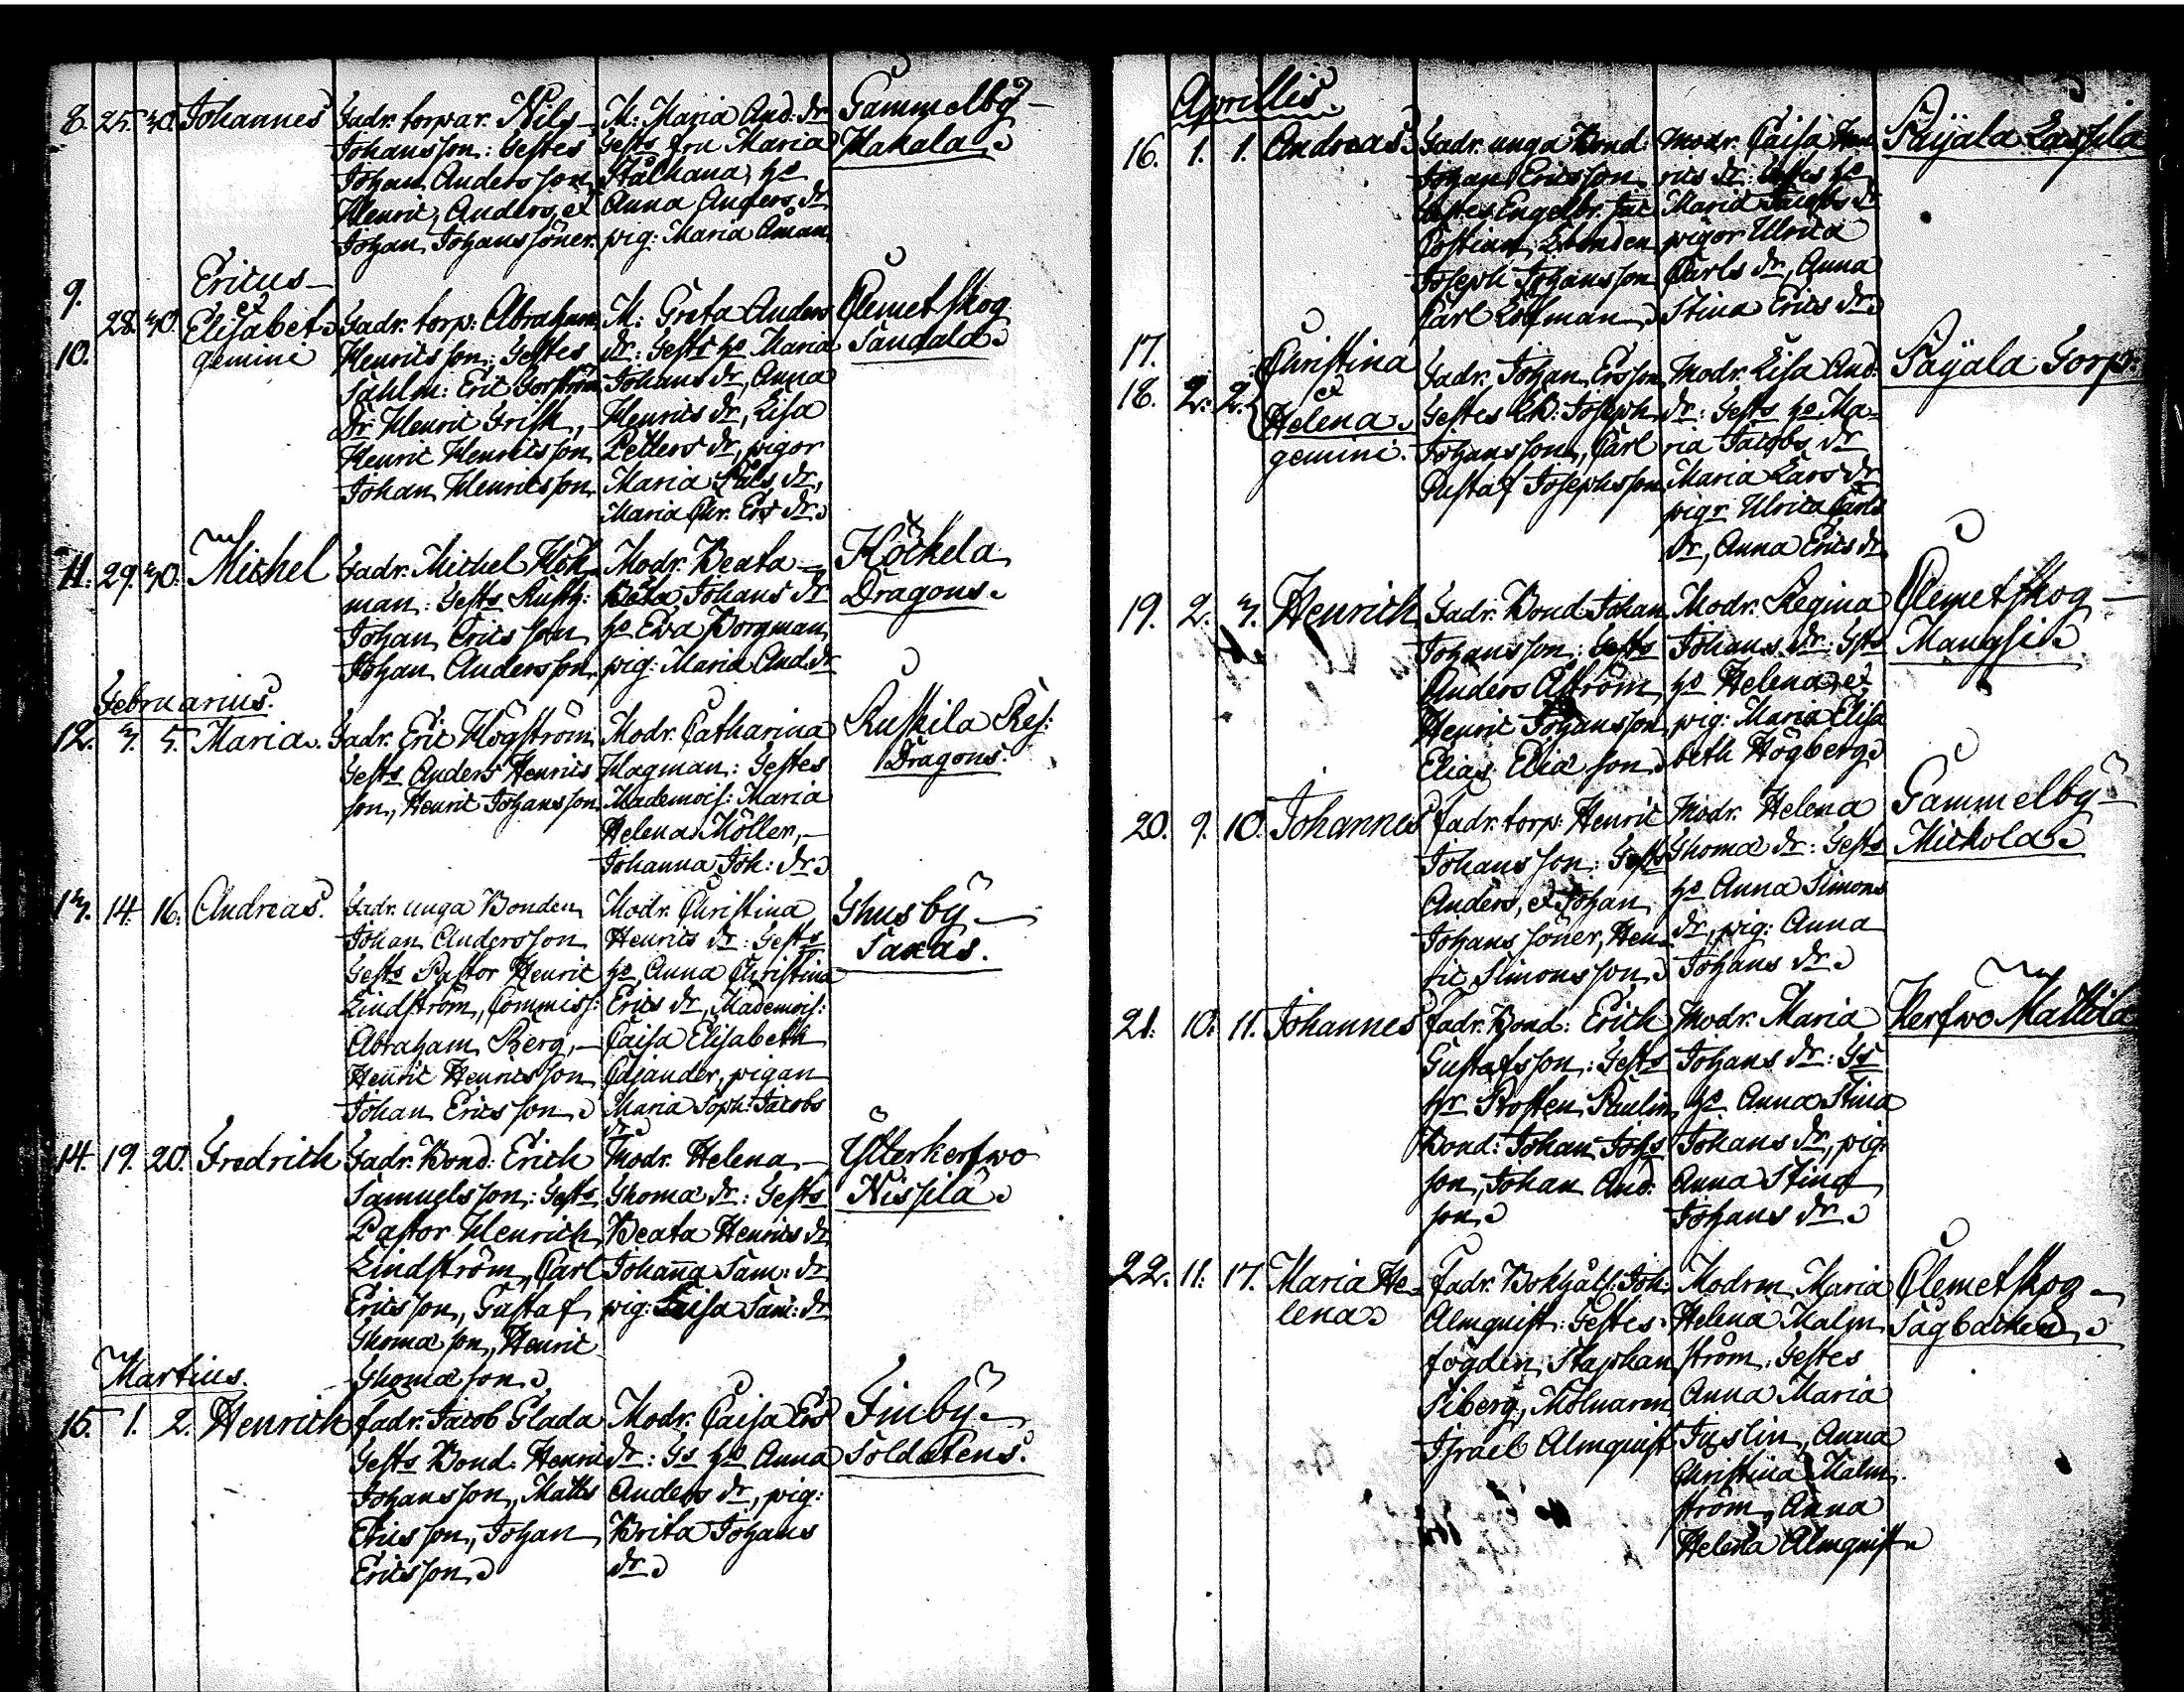 8. 25. 30. Johannes
Fadr. torpar. Nils
Johansson: Testes
Johan Andersson
Henric, Anders, et
Johan Johans söner.
M: Maria And: dr
Tests fru Maria
Stålhana, ho
Anna Anders dr
pig: Maria Åman
Gammelby
Makala
9. 10. 28. 30.
Ericus
et
Elisabet
gemini
Fadr. torp: Abraham
Henricsson: Testes
Sahlm: Eric
Dr Henric Frisk,
Henric Henricsson
Johan Henricsson
M: Greta Anders
dr: Tests ho Maria
Johans dr, Anna
Henrics dr, Lisa
Petters dr, pigor
Maria Nils dr,
Maria Chr. Ers dr
Clemetskog
Sandala
11. 29. 30. Michel
Fadr. Michel Hök
man: Tests Rusth:
Johan Ericsson
Johan Andersson
Modr. Beata
Johans dr
ho Eva Borgman
pig: Maria And. dr
Köckela
Dragons
Februarius.
12. 3. 5. Maria
Fadr. Eric Högström
Tests Anders Henrics
son, Henric Johansson
Modr. Catharina
Hagman: Testes
Mademois: Maria
Helena Möller,
Johanna Joh: dr
Kuskila Kes:
Dragons.
13. 14. 16. Andreas.
Fadr. unga Bonden
Johan Andersson
Tests Pastor Henric
Lindström, Commiss:
Abraham Berg,
Henric Henricsson
Johan Ericsson
Modr. Christina
Henrics dr: Tests
ho Anna Christina
Erics dr, Mademois:
Caisa Elisabeth
Cajander, pigan
Maria Soph: Jacobs
dr
Thusby
Saxas.
14. 19. 20. Fredrich
Fadr. Bond: Erich
Samuelsson: Tests
Pastor Henrich
Lindström, Carl
Ericsson, Gustaf
Thomason, Henric
Thomason
Modr. Helena
Thoma dr: Tests
Beata Henrics dr
Johanna Sam: dr
pig: Caisa Sam: dr
Ytterkerfwo
Nissila
Martius.
15. 1. 2. Henrich
fadr. Jacob Glada
Tests Bond. Henric
Johansson, Matts
Ericsson, Johan
Ericsson
Modr. Caisa Ers
dr: Ts ho Anna
Anders dr, pig:
Brita Johans
dr
Finby
Soldatens.
Aprillis.
16. 1. 1. Andreas
Fadr. unga Bond:
Johan Ericsson
Testes Engelbr. Jac
Bonden
Joseph Johansson
Carl Löfman
Modr. Caisa Hen
rics dr: Testes ho
Maria Jacobs dr
pigor Ulrica
Carls dr, Anna
Stina Erics dr
Päijala Lassila
17. 18. 2. 2.
Christina
et
Helena
gemini.
Fadr. Johan Ersson
Testes LB: Joseph
Johansson, Carl
Gustaf Josephsson
Modr. Lisa And:
dr: Tests ho Ma-
ria Jacobs dr
Maria Lars dr
pigr Ulrica Carls
dr, Anna Erics dr
Päijala Torp:
19. 2. 3. Henrich
Fadr. Bond Johan
Johansson: Tests
Anders Åström
Henric Johansson
Elias Eliasson
Modr. Regina
Johans dr: Tsts
ho Helena, et
pig: Maria Elisa
beth Högberg
Clemetskog
Mangsi
20. 9. 10. Johannes
fadr. torp: Henric
Johansson: Tests
Anders, et Johan
Johans söner, Hen-
ric Simonsson
Modr. Helena
Thoma dr: Tests
ho Anna Simons
dr, pig: Anna
Johans dr
Gammelby
Mickola
21. 10. 11. Johannes
fadr. Bond: Erich
Gustafsson: Tests
hr Prosten Paulin
Bond: Johan Johs
son, Johan And.
son
Modr. Maria
Johans dr: Ts
ho Anna Stina
Johans dr, pig:
Anna Stina
Johans dr
Kerfwo Mattila
22. 11. 17. Maria He-
lena
fadr. Bokhåll: Joh:
Almquist: Testes
fogden Staphan
Siberg, Mölnaren
Israel Almquist
Modrn Maria
Helena Malm
ström: Testes
Anna Maria
Juslin, Anna
Christina Malm
ström, Anna
Helena Almquist
Clemetskog
Sågbacken